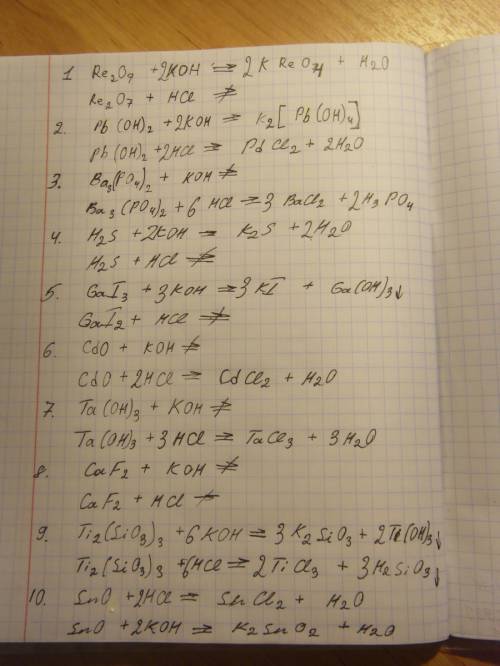 1 Re2O7 + 2KOH = 2KReO4 + H2O
Re2O7 + HCl ≠
2. Pb(OH)2 + 2KOH = K2[Pb(OH)4]
Pb(OH)2 + 2HCl = PdCl2 + 2H2O
3. Ba3(PO4)2 + KOH ≠
Ba3(PO4)2 + 6HCl = 3BaCl2 + 2H3PO4
4. H2S + 2KOH = K2S + 2H2O
H2S + HCl ≠
5. GaI3 + 3KOH = 3KI + Ga(OH)3↓
GaI2 + HCl ≠
6. CdO + KOH ≠
CdO + 2HCl = CdCl2 + H2O
7. Ta(OH)3 + KOH ≠
Ta(OH)3 + 3HCl = TaCl3 + 3H2O
8. CaF2 + KOH ≠
CaF2 + HCl ≠
9. Ti2(SiO3)3 + 6KOH = 3K2SiO3 + 2Ti(OH)3↓
Ti2(SiO3)3 + 6HCl = 2TiCl3 + 3H2SiO3↓
10. SnO + 2HCl = SnCl2 + H2O
SnO + 2KOH = K2SnO2 + H2O